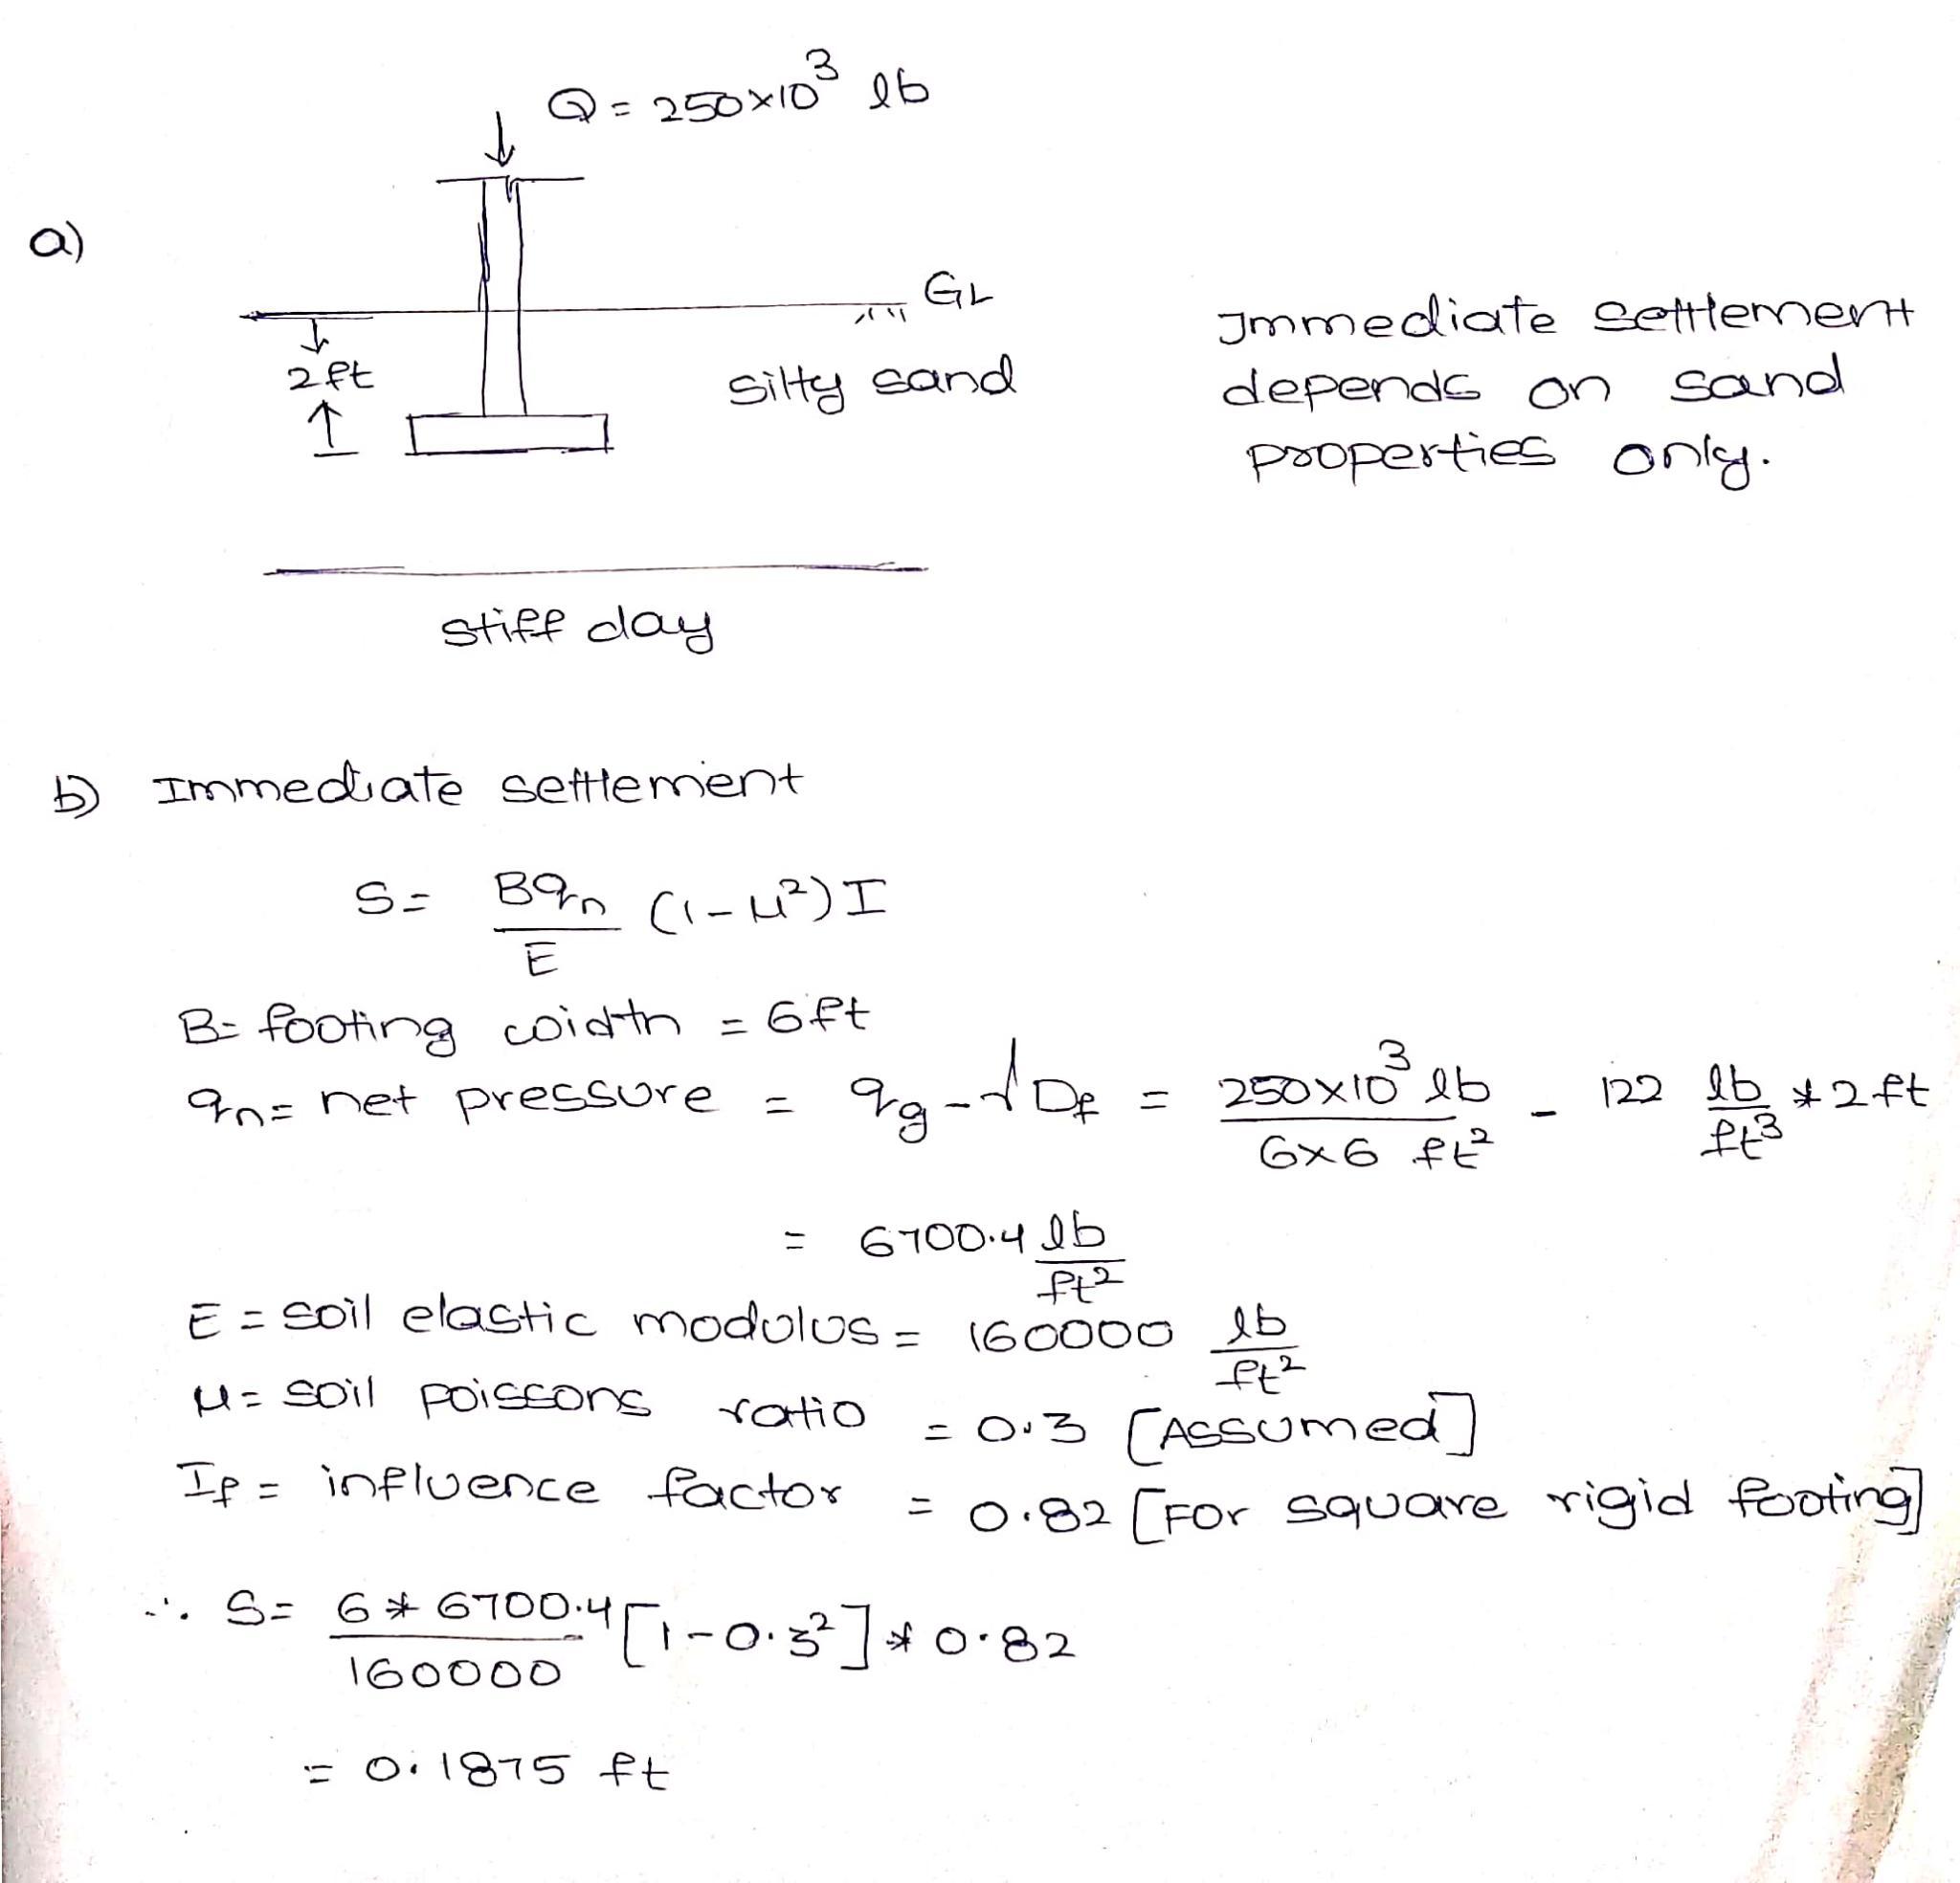 Q = 250×10³ lb
a)
GL
2ft
silty sand
Immediate settlement
depends on sand
properties only.
stiff clay
b) Immediate settlement
S = Bqn/E (1-μ²) I
B = footing width = 6ft
qn = net pressure = qg - γDf = 250×10³ lb / 6×6 ft² - 122 lb/ft³ * 2ft
= 6700.4 lb/ft²
E = soil elastic modulus = 160000 lb/ft²
μ = soil poissons ratio = 0.3 [Assumed]
If = influence factor = 0.82 [For square rigid footing]
∴ S = 6 * 6700.4 / 160000 [1-0.3²] * 0.82
= 0.1875 ft